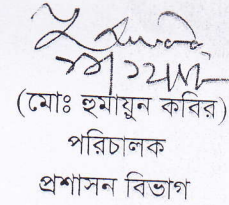 (মোঃ হুমায়ুন কবির)
পরিচালক
প্রশাসন বিভাগ